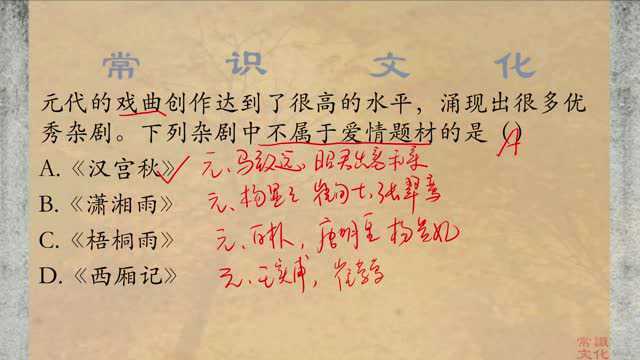 常识文化
元代的戏曲创作达到了很高的水平，涌现出很多优
秀杂剧。下列杂剧中不属于爱情题材的是（）A
A.《汉宫秋》 元、马致远，昭君出塞和亲
B.《潇湘雨》 元、杨显之 崔甸士、张翠鸾
C.《梧桐雨》 元、白朴，唐明皇 杨贵妃
D.《西厢记》 元、王实甫，崔莺莺
常識
文化